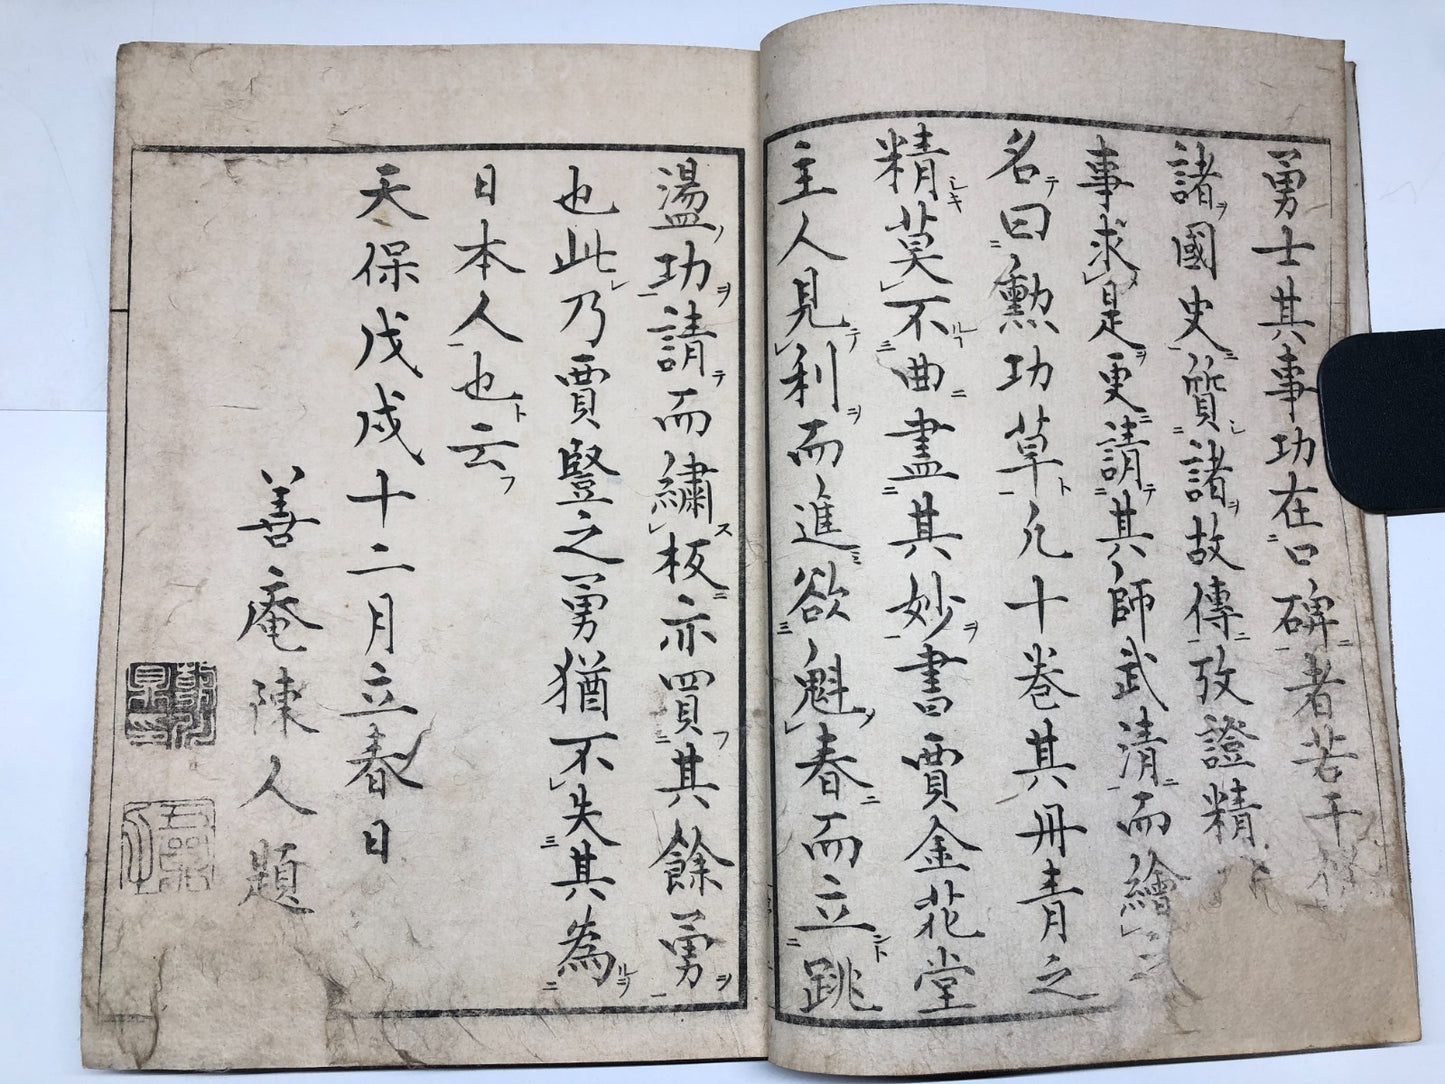 勇士其事功在口碑者若干
諸國史質諸故傳攷證精
事求是更請其師武清而繪之
名曰勲功草凡十巻其丹青之
精莫不曲盡其妙書賈金花堂
主人見利而進欲魁春而立跳
盪功請而繡板亦買其餘勇
也此乃賈豎之勇猶不失其為
日本人也云
天保戊戌十二月立春日
善庵陳人題